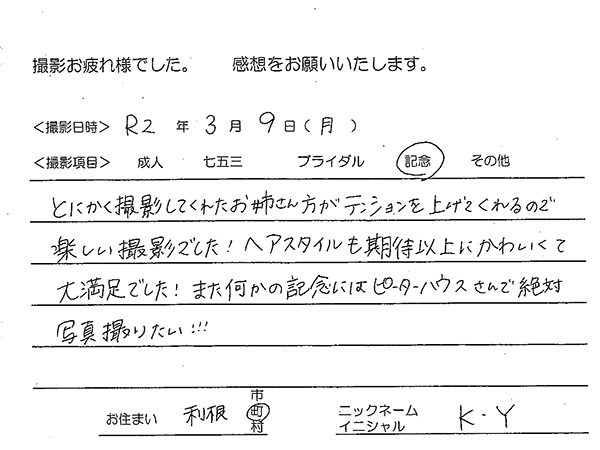 撮影お疲れ様でした。 感想をお願いいたします。
<撮影日時> R2 年 3 月 9 日(月)
<撮影項目> 成人 七五三 ブライダル 記念 その他
とにかく撮影してくれたお姉さん方がテンションを上げてくれるので
楽しい撮影でした！ヘアスタイルも期待以上にかわいくて
大満足でした！また何かの記念にはピーターハウスさんで絶対
写真撮りたい!!!
お住まい 利根 市町村 ニックネーム イニシャル K・Y